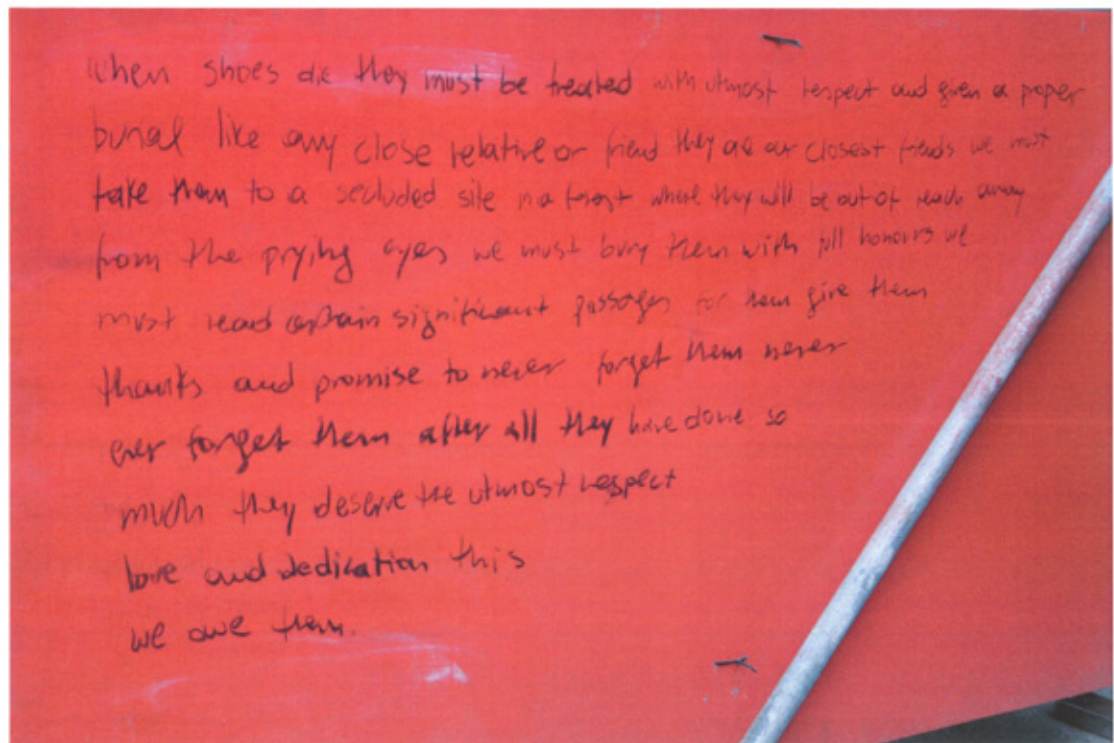 When shoes die they must be treated with utmost respect and given a proper
burial like any close relative or friend they are our closest friends we must
take them to a secluded site in a forest where they will be out of reach away
from the prying eyes we must bury them with full honours we
must read certain significant passages for them give them
thanks and promise to never forget them never
ever forget them after all they have done so
much they deserve the utmost respect
love and dedication this
we owe them.